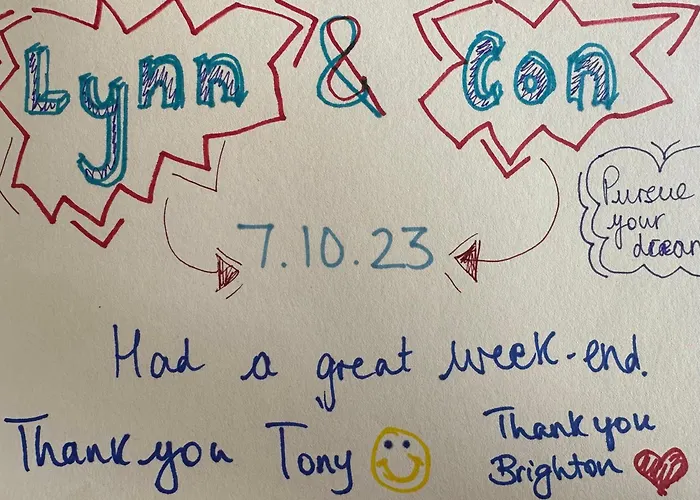 Lynn & Con
7.10.23
Pursue
your
Had a great week-end.
Thank you Tony
Thank you
Brighton